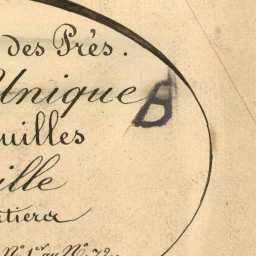 des Prés.
Unique B
uilles
ille
tiera
N° 1er au N° 72